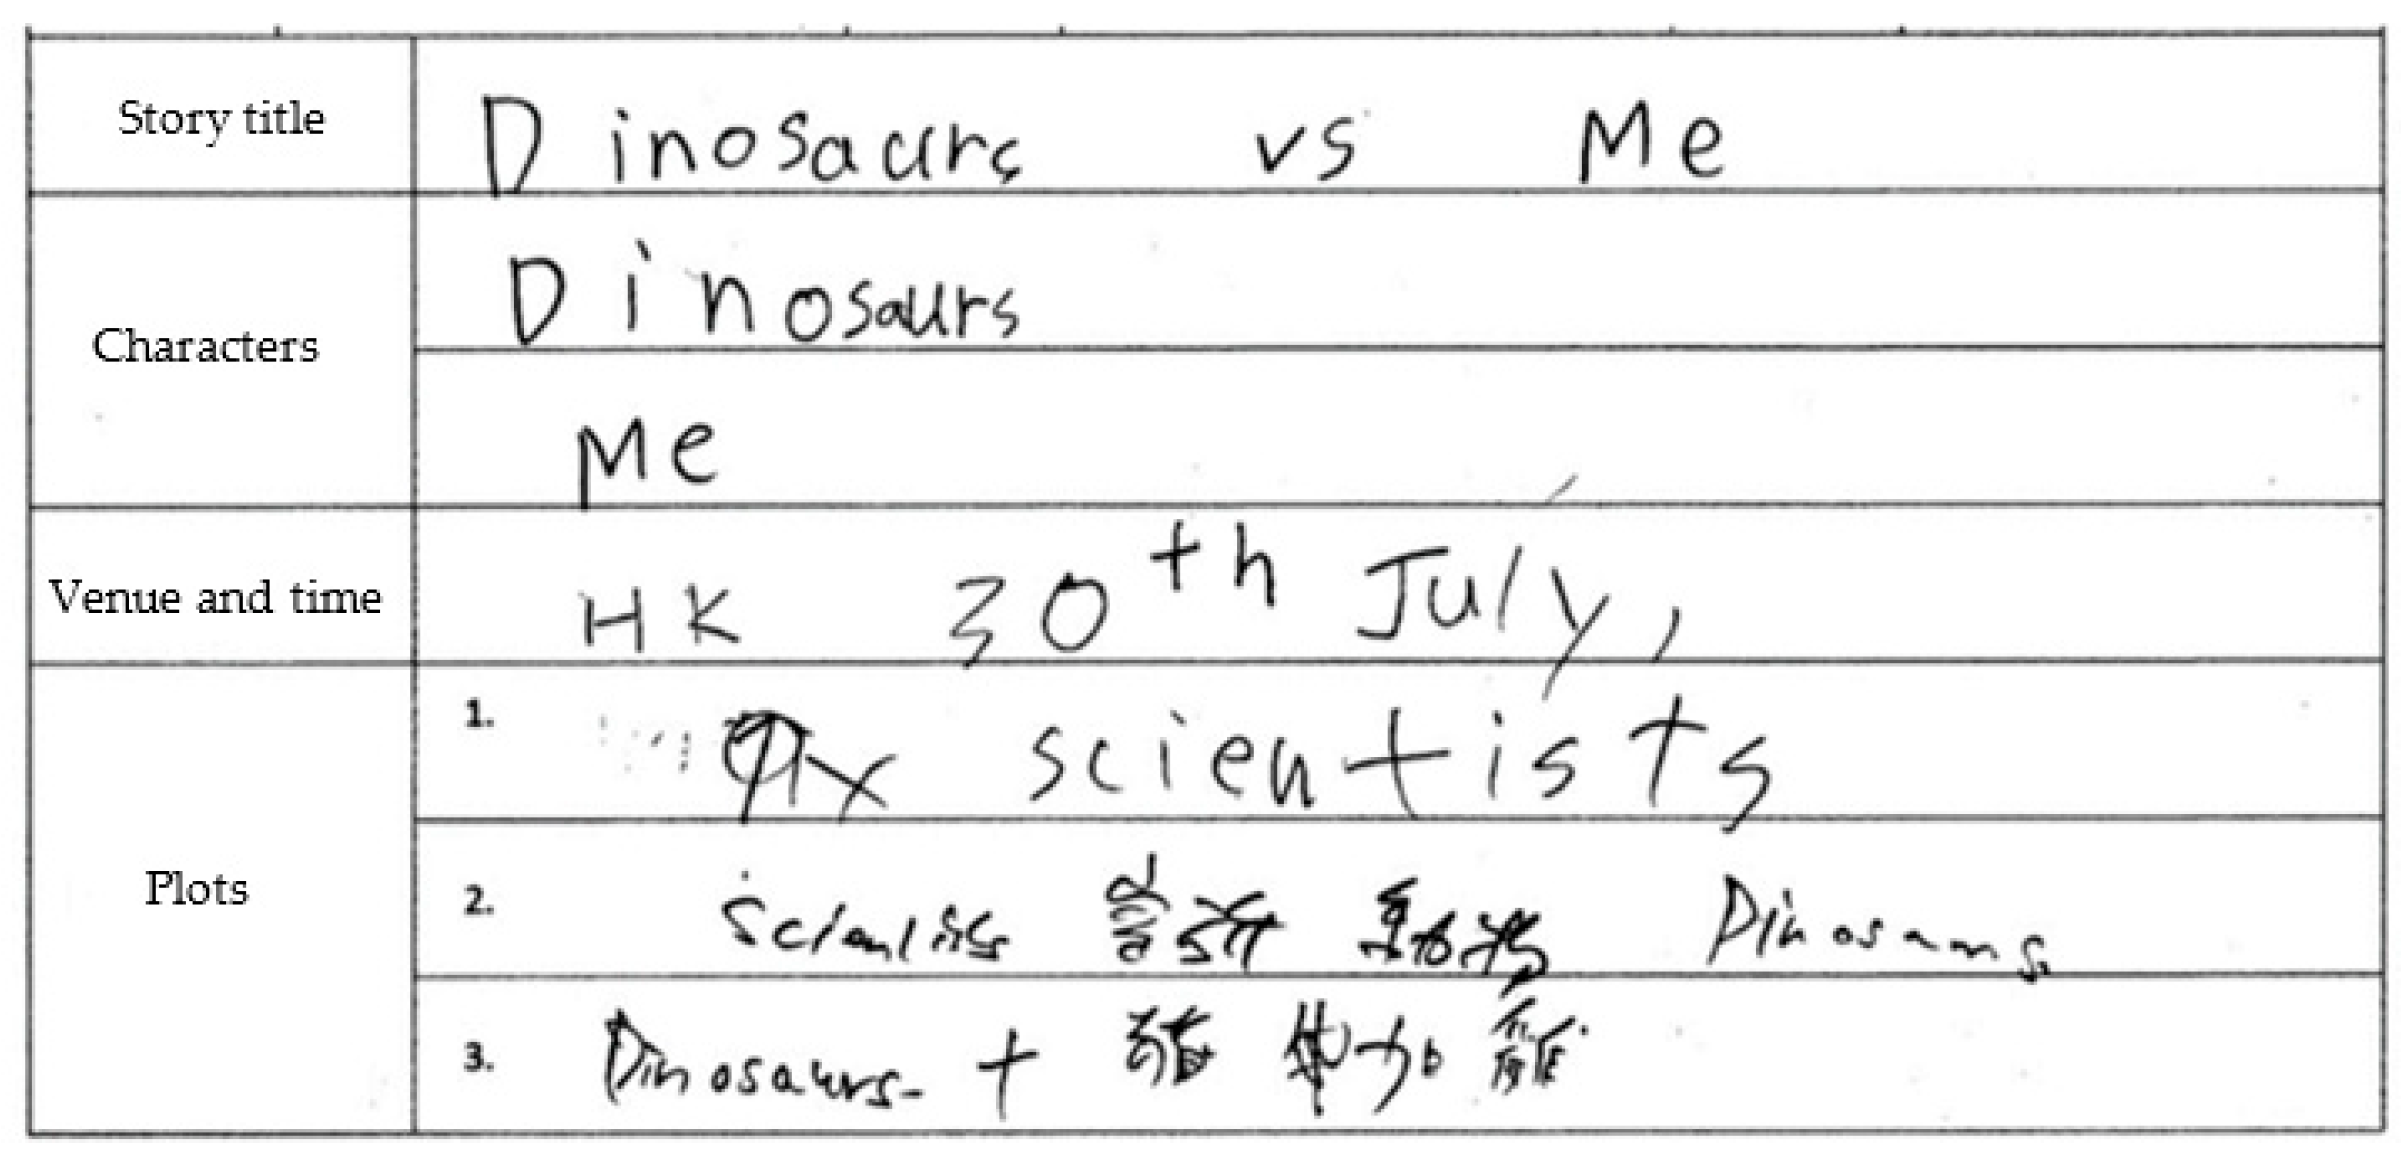 Story title
Dinosaurs vs Me
Characters
Dinosaurs
Me
Venue and time
HK 30th July,
Plots
1. scientists
2. Scientists Dinosaurs
3. Dinosaurs +